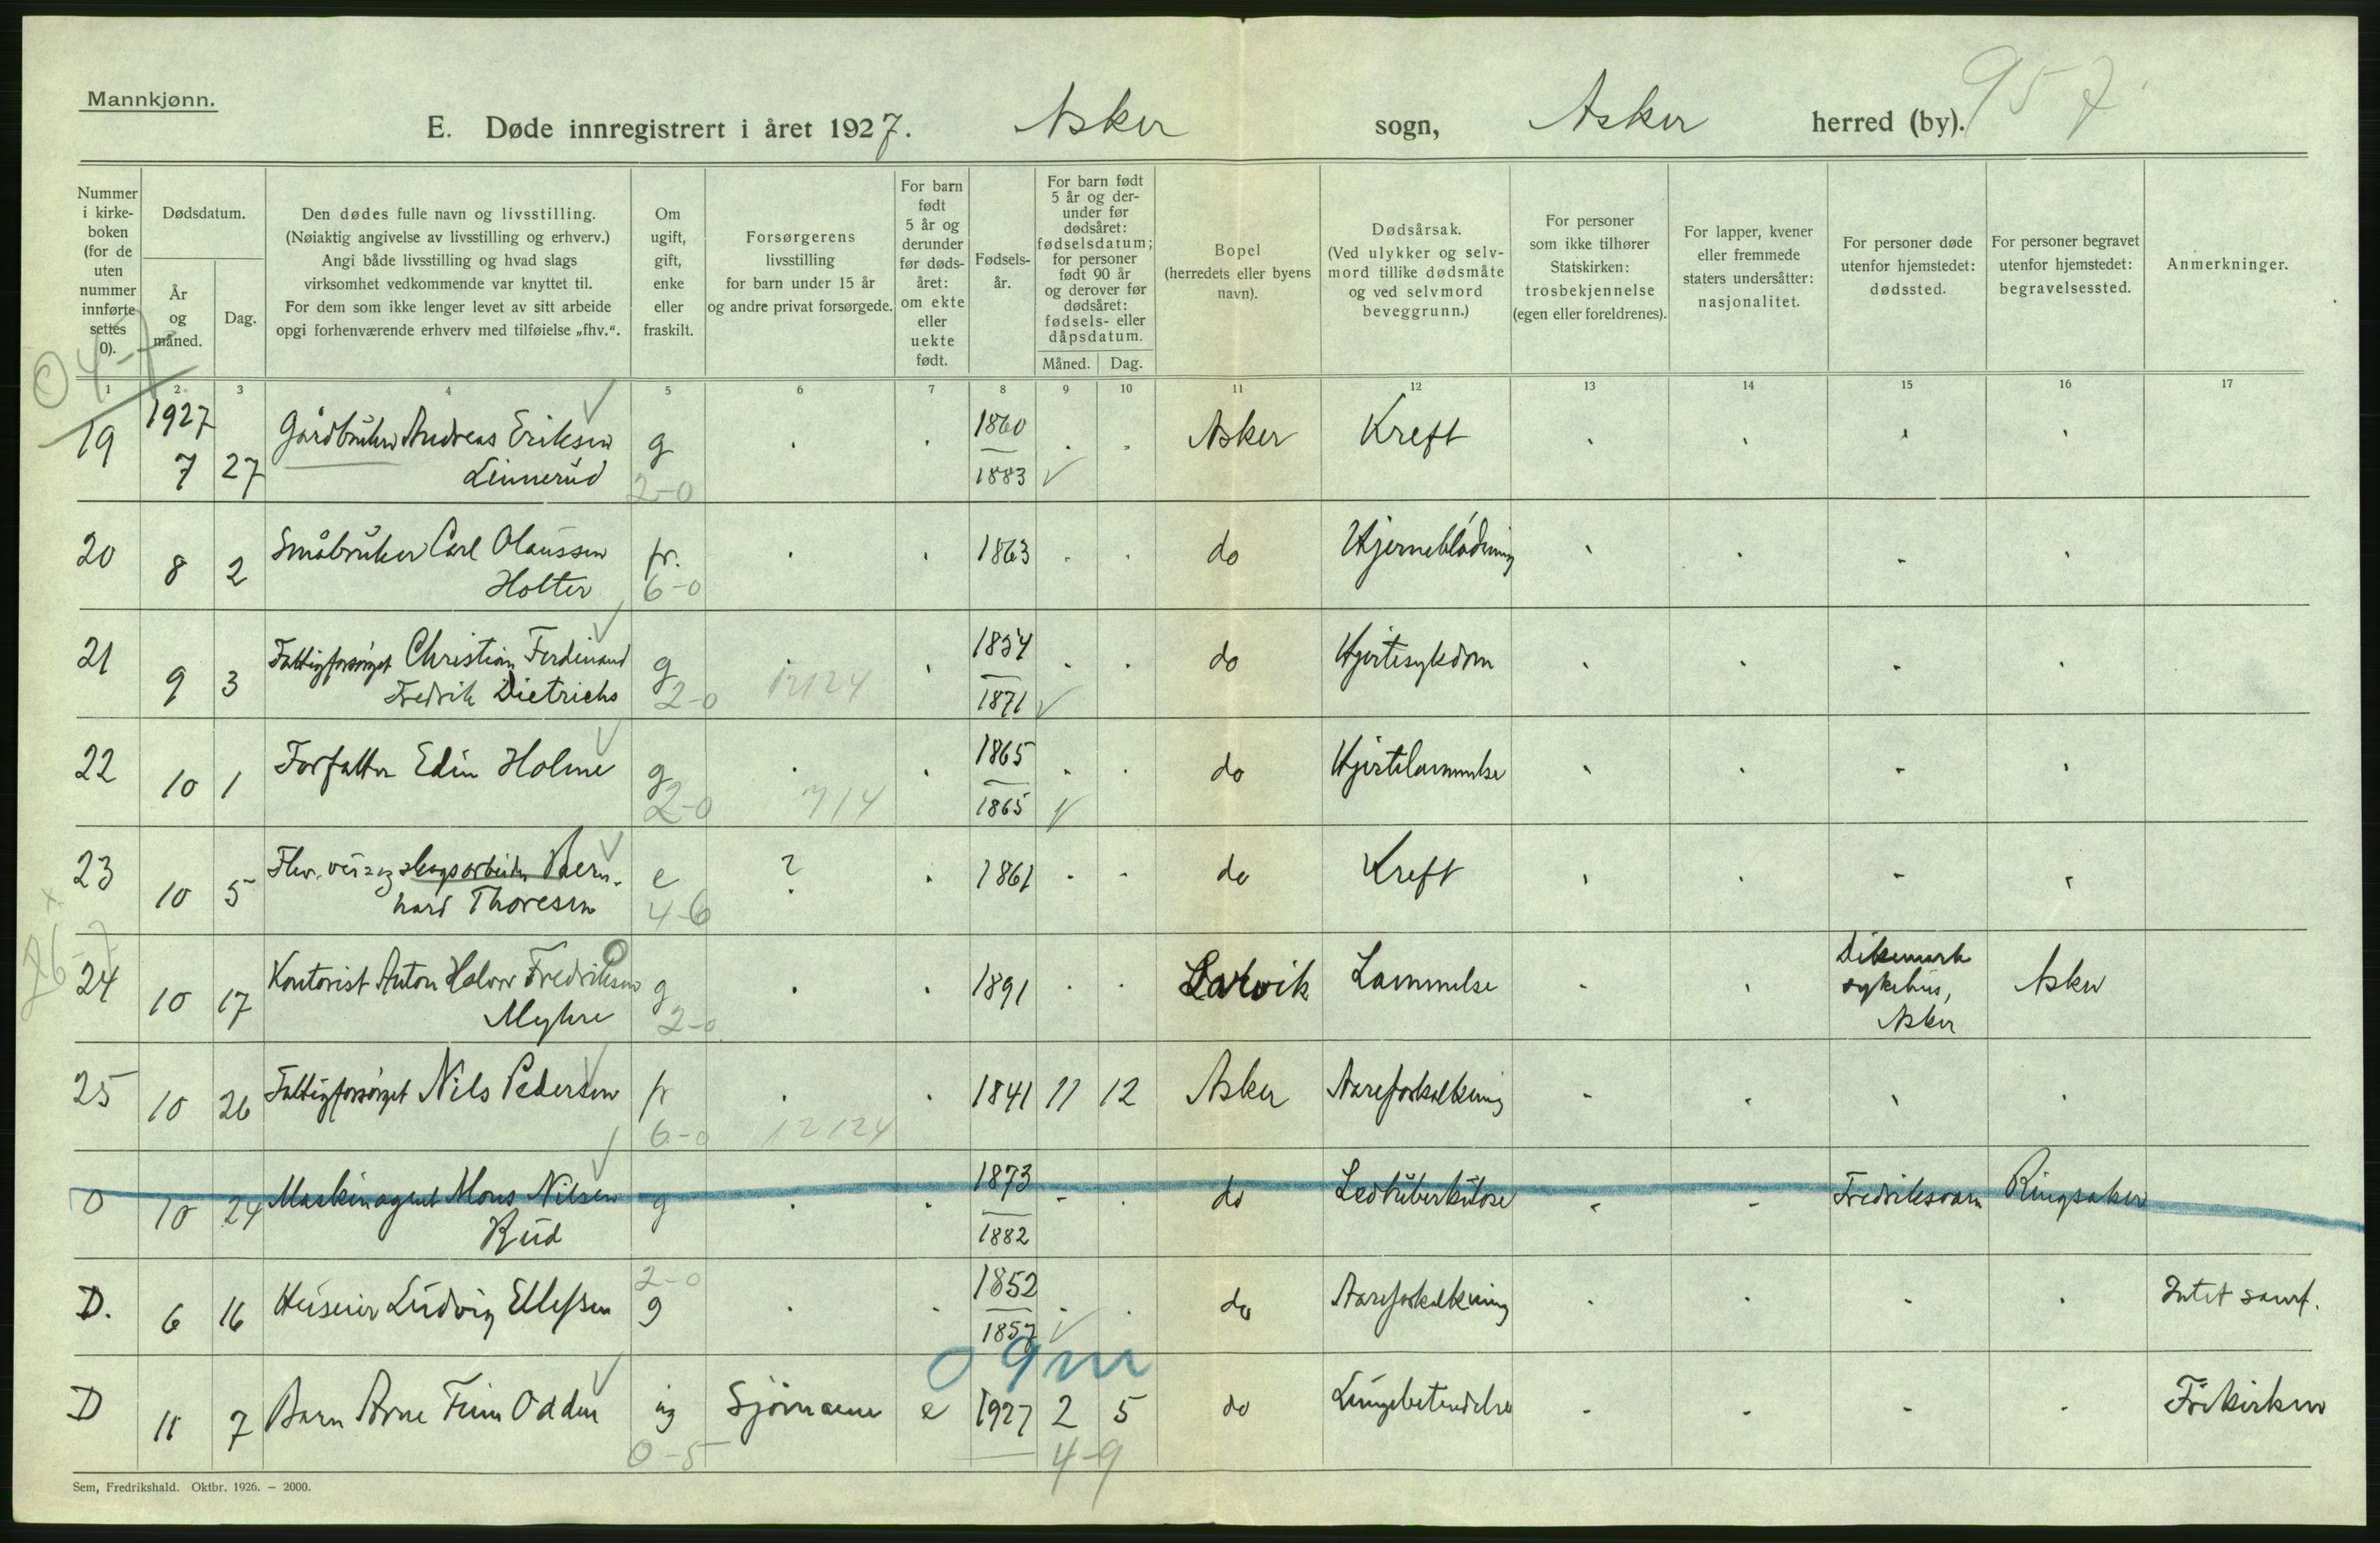 Mannkjønn.
E. Døde innregistrert i året 1927. Asker sogn, Asker herred (by). 957
Nummer i kirkeboken (for de uten nummer innførte settes 0).
Dødsdatum.
År og måned.
Dag.
Den dødes fulle navn og livsstilling.
(Nøiaktig angivelse av livsstilling og erhverv.)
Angi både livsstilling og hvad slags
virksomhet vedkommende var knyttet til.
For dem som ikke lenger levet av sitt arbeide
opgi forhenværende erhverv med tilføielse „fhv.“.
Om ugift, gift, enke eller fraskilt.
Forsørgerens
livsstilling
for barn under 15 år
og andre privat forsørgede.
For barn født 5 år og derunder før dødsåret: om ekte eller uekte født.
Fødselsår.
For barn født 5 år og derunder før dødsåret: fødselsdatum; for personer født 90 år og derover før dødsåret: fødsels- eller dåpsdatum.
Måned. Dag.
Bopel
(herredets eller byens
navn).
Dødsårsak.
(Ved ulykker og selvmord tillike dødsmåte og ved selvmord beveggrunn.)
For personer
som ikke tilhører
Statskirken:
trosbekjennelse
(egen eller foreldrenes).
For lapper, kvener
eller fremmede
staters undersåtter:
nasjonalitet.
For personer døde
utenfor hjemstedet:
dødssted.
For personer begravet
utenfor hjemstedet:
begravelsessted.
Anmerkninger.
1 2 3 4 5 6 7 8 9 10 11 12 13 14 15 16 17
19 1927 7 27 Gårdbruker Andreas Eriksen g 1860 Asker Kreft
Linnerud 2-0 1883
20 8 2 Småbruker Carl Olaussen fr. 1863 do Hjerneblødning
Holter 6-0
21 9 3 Fattigforsørget Christian Ferdinand g 1854 do Hjertesykdom
Fredrik Dietrichs 2-0 12124 1871
22 10 1 Forfatter Edin Holme g 1865 do Hjertelammelse
2-0 714 1865
23 10 5 Fhv. vei- og skogsarbeider Bern- e ? 1861 do Kreft
hard Thoresen 4-6
24 10 17 Kontorist Anton Halvor Fredriksen g 1891 Larvik Lammelse Dikemark sykehus, Asker Asker
Myhre 2-0
25 10 26 Fattigforsørget Nils Pedersen fr 1841 11 12 Asker Aareforkalkning
6-0 12124
0 10 24 Maskinagent Mons Nilsen g 1873 do Ledtuberkulose Fredriksværn Ringsaker
Rud 1882
2-0
D. 6 16 Huseier Ludvig Ellefsen g 1852 do Aareforkalkning Intet samf.
1857
0 9m
D 11 7 Barn Arne Finn Odden ug Sjømann e 1927 2 5 do Lungebetendelse Frikirken
0-5 4-9
Sem, Fredrikshald. Oktbr. 1926. – 2000.